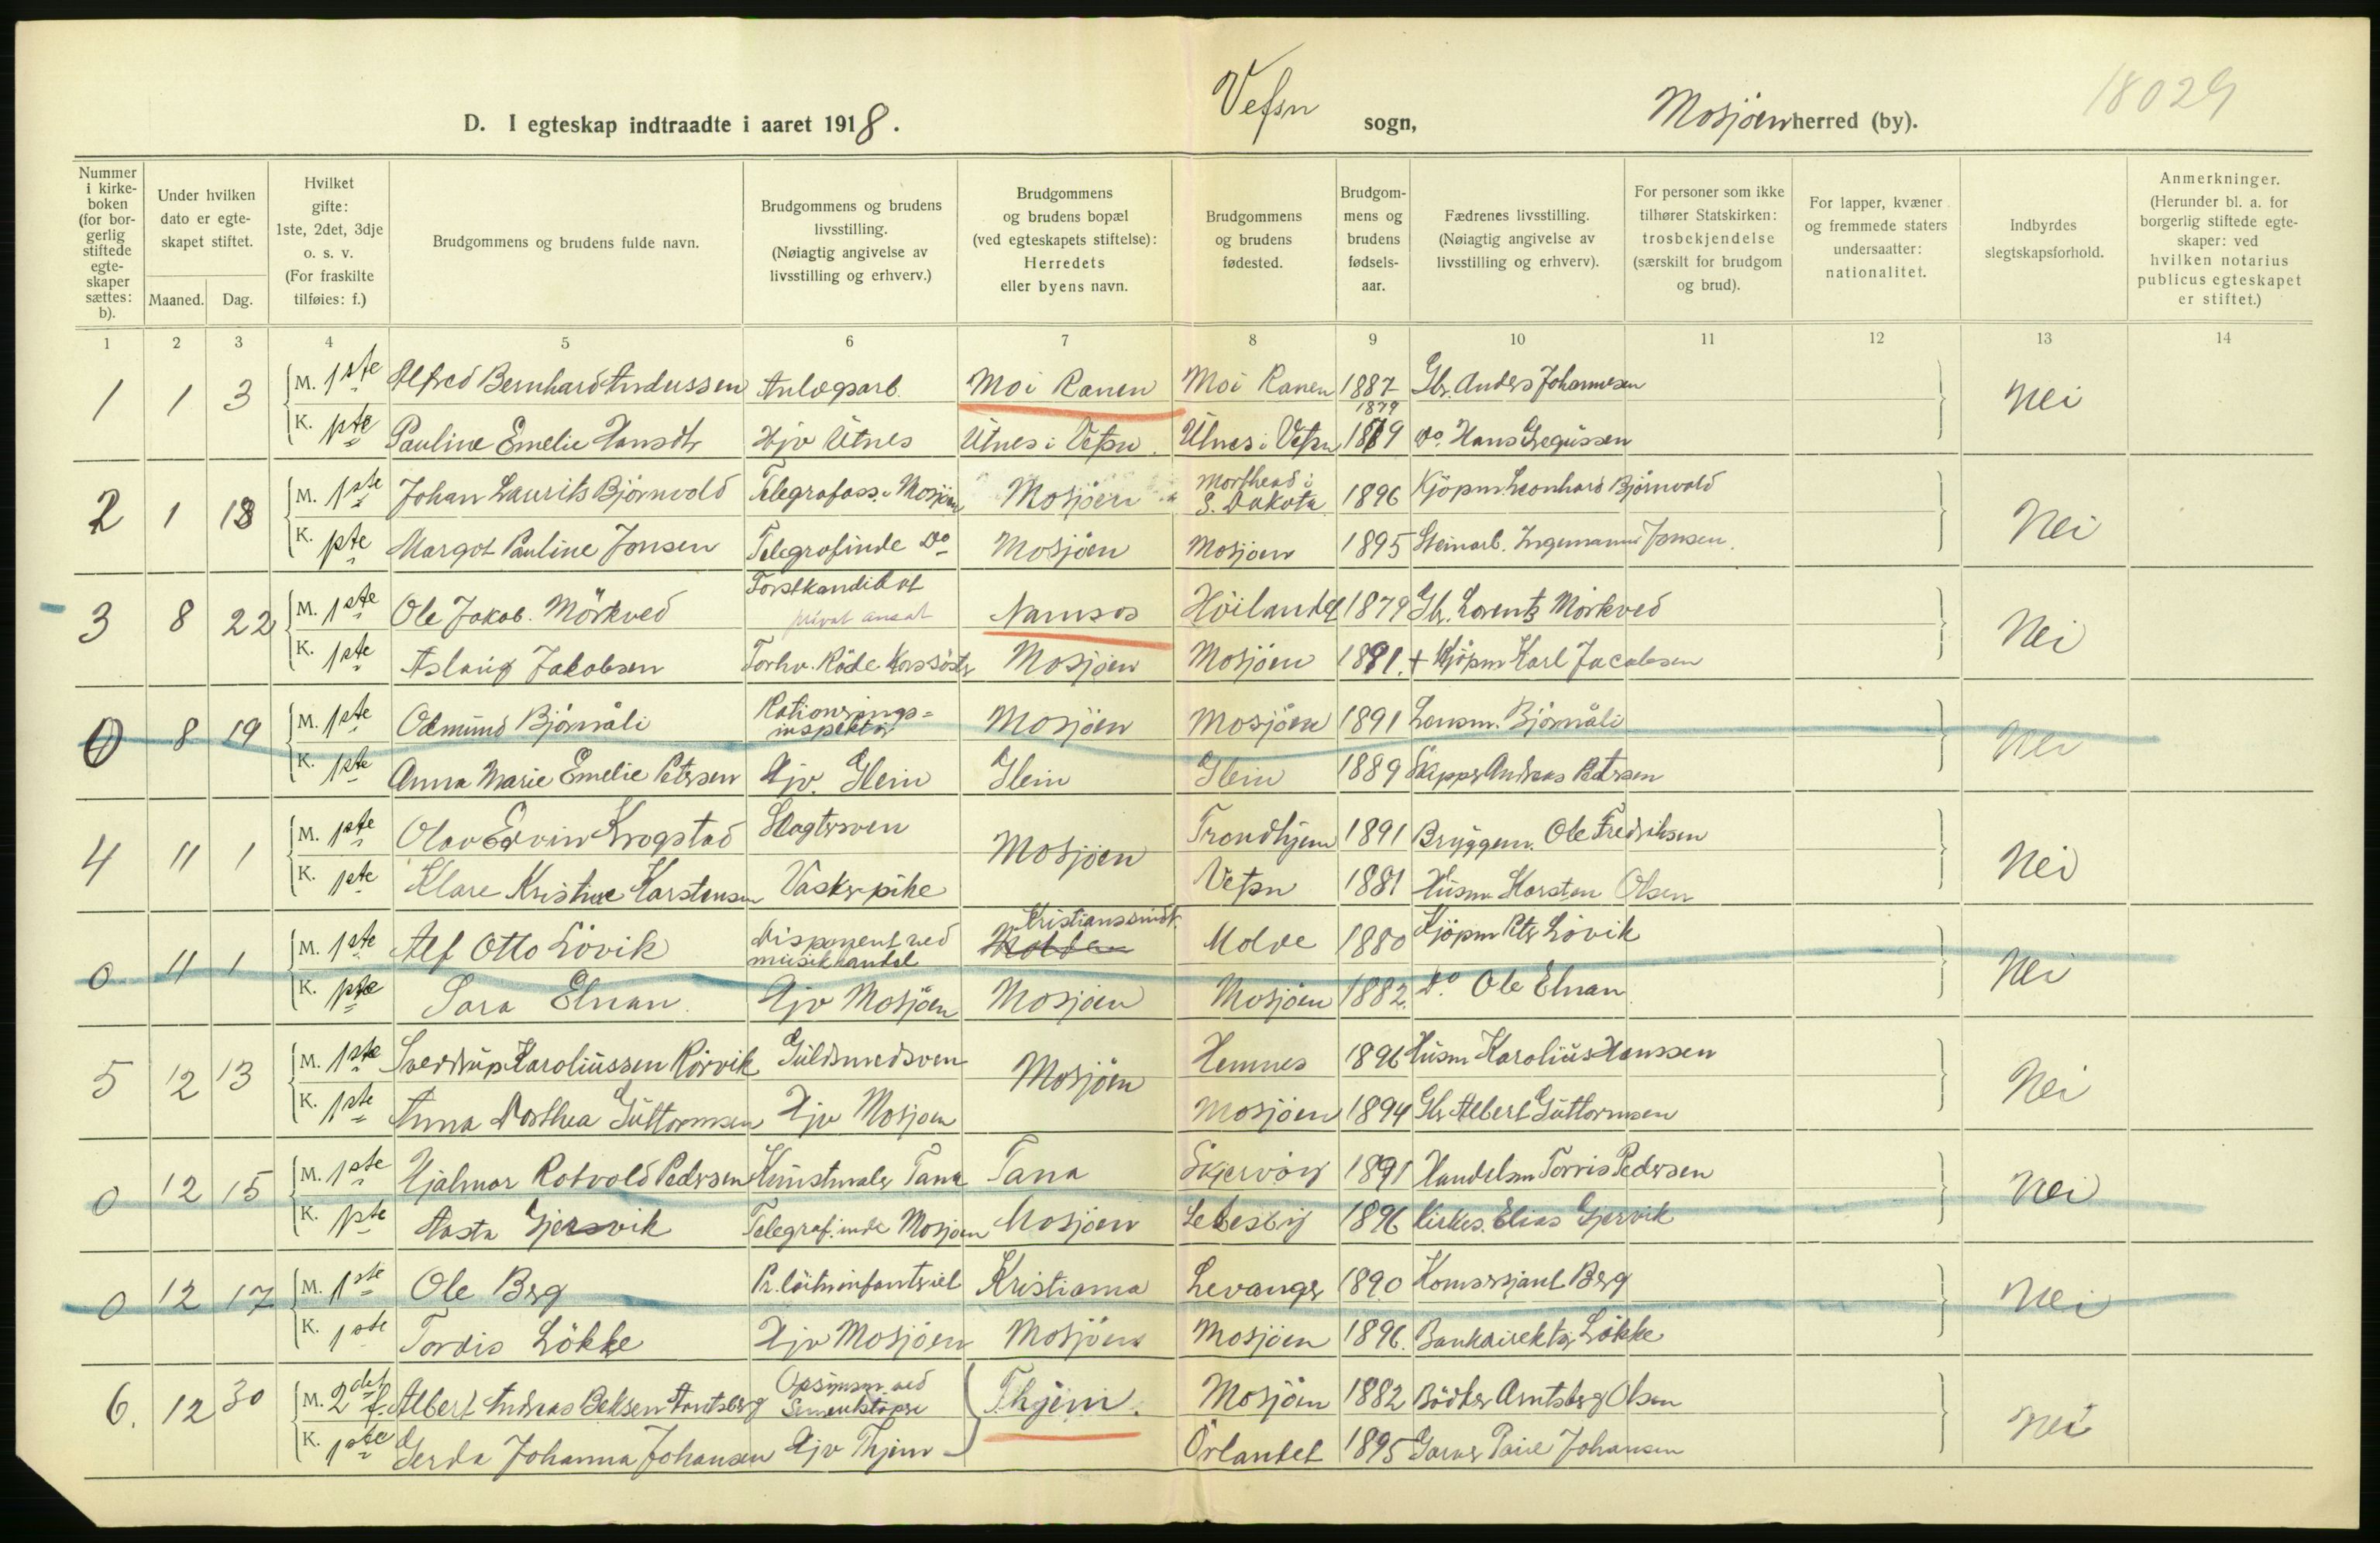 18029
D. I egteskap indtraadte i aaret 1918.
Vefsn sogn,
Mosjöen herred (by).
Nummer i kirkeboken (for borgerlig stiftede egteskaper sættes: b).
Under hvilken dato er egteskapet stiftet.
Maaned. Dag.
Hvilket gifte: 1ste, 2det, 3dje o. s. v. (For fraskilte tilføies: f.)
Brudgommens og brudens fulde navn.
Brudgommens og brudens livsstilling. (Nøiagtig angivelse av livsstilling og erhverv.)
Brudgommens og brudens bopæl (ved egteskapets stiftelse): Herredets eller byens navn.
Brudgommens og brudens fødested.
Brudgommens og brudens fødselsaar.
Fædrenes livsstilling. (Nøiagtig angivelse av livsstilling og erhverv).
For personer som ikke tilhører Statskirken: trosbekjendelse (særskilt for brudgom og brud).
For lapper, kvæner og fremmede staters undersaatter: nationalitet.
Indbyrdes slegtskapsforhold.
Anmerkninger. (Herunder bl. a. for borgerlig stiftede egteskaper: ved hvilken notarius publicus egteskapet er stiftet.)
1 2 3 4 5 6 7 8 9 10 11 12 13 14
1 1 3 M. 1ste Alfred Bernhard Andussen Anlægsarb. Moi Ranen Moi Ranen 1887 Gbr. Anders Johannesen Nei
1879
K. 1ste Pauline Emelie Hansdtr Hjv Utnes Utnes i Vefsn. Utnes i Vefsn 1879 Do. Hans Zegussen
2 1 18 M. 1ste Johan Laurits Björnvold Telegrafass. Mosjöen Mosjöen Morthead i S. Dakota 1896 Kjöpm. Leonhard Björnvold Nei
K. 1ste Margot Pauline Jonsen Telegrafinde Do Mosjöen Mosjöen 1895 Steinarb. Ingemann Jonsen.
3 8 22 M. 1ste Ole Jakob. Mörkved Forstkandidat privat ansat Namsos Höilandet 1879 Gbr. Lorents Mörkved Nei
K. 1ste Aslaug Jakobsen Forhv. Röde Korssöster Mosjöen Mosjöen 1881. + Kjöpm Karl Jacobsen
0 8 19 M. 1ste Odmund Björnåli Rationeringsinspektör Mosjöen Mosjöen 1891 Lensm. Björnåli Nei
K. 1ste Anna Marie Emelie Petersen Hjv. Glein Glein Glein 1889 Skipper Andreas Petersen
4 11 1 M. 1ste Olav Edvin Krogstad Slagtersven Mosjöen Trondhjem 1891 Bryggem. Ole Fredriksen Nei
K. 1ste Klare Kristine Karstensen Vaskerpike Vefsn 1881 Husm Karsten Olsen
0 11 1 M. 1ste Alf Otto Lövik Disponent ved musikhandel Kristianssund. Molde 1880 Kjöpm Peter Lövik Nei
K. 1ste Sara Elnan. Hjv Mosjöen Mosjöen Mosjöen 1882. Do. Ole Elnan
5 12 13 M. 1ste Sverdrup Karoliussen Rörvik Guldsmedsven Mosjöen Hemnes 1896 Husm Karolius Hanssen Nei
K. 1ste Anna Dorthea Guttormsen Hjv Mosjöen Mosjöen 1894 Gbr Albert Guttormsen
0 12 15 M. 1ste Hjalmar Rotvold Pedersen Kunstmaler Tana Tana Skjervöy 1891 Handelsm Torris Pedersen Nei
K. 1ste Aasta Gjersvik Telegrafinde Mosjöen Mosjöen Lebesby 1896 Kirkes. Elias Gjervik
0 12 17 M. 1ste Ole Berg Pr. löitn infanteriet Kristiania Levanger 1890 Komersjant Berg Nei
K. 1ste Tordis Lökke Hjv Mosjöen Mosjöen Mosjöen 1896. Bankdirektör Lökke
6. 12 30 M. 2det f. Albert Andreas Beksen Arntsberg Opsynsm ved Sementstöpri Thjem. Mosjöen 1882 Bödker Arntsberg Olsen Nei
K. 1ste Gerda Johanna Johansen Hjv Thjem Örlandet 1895 Garver Paul Johansen